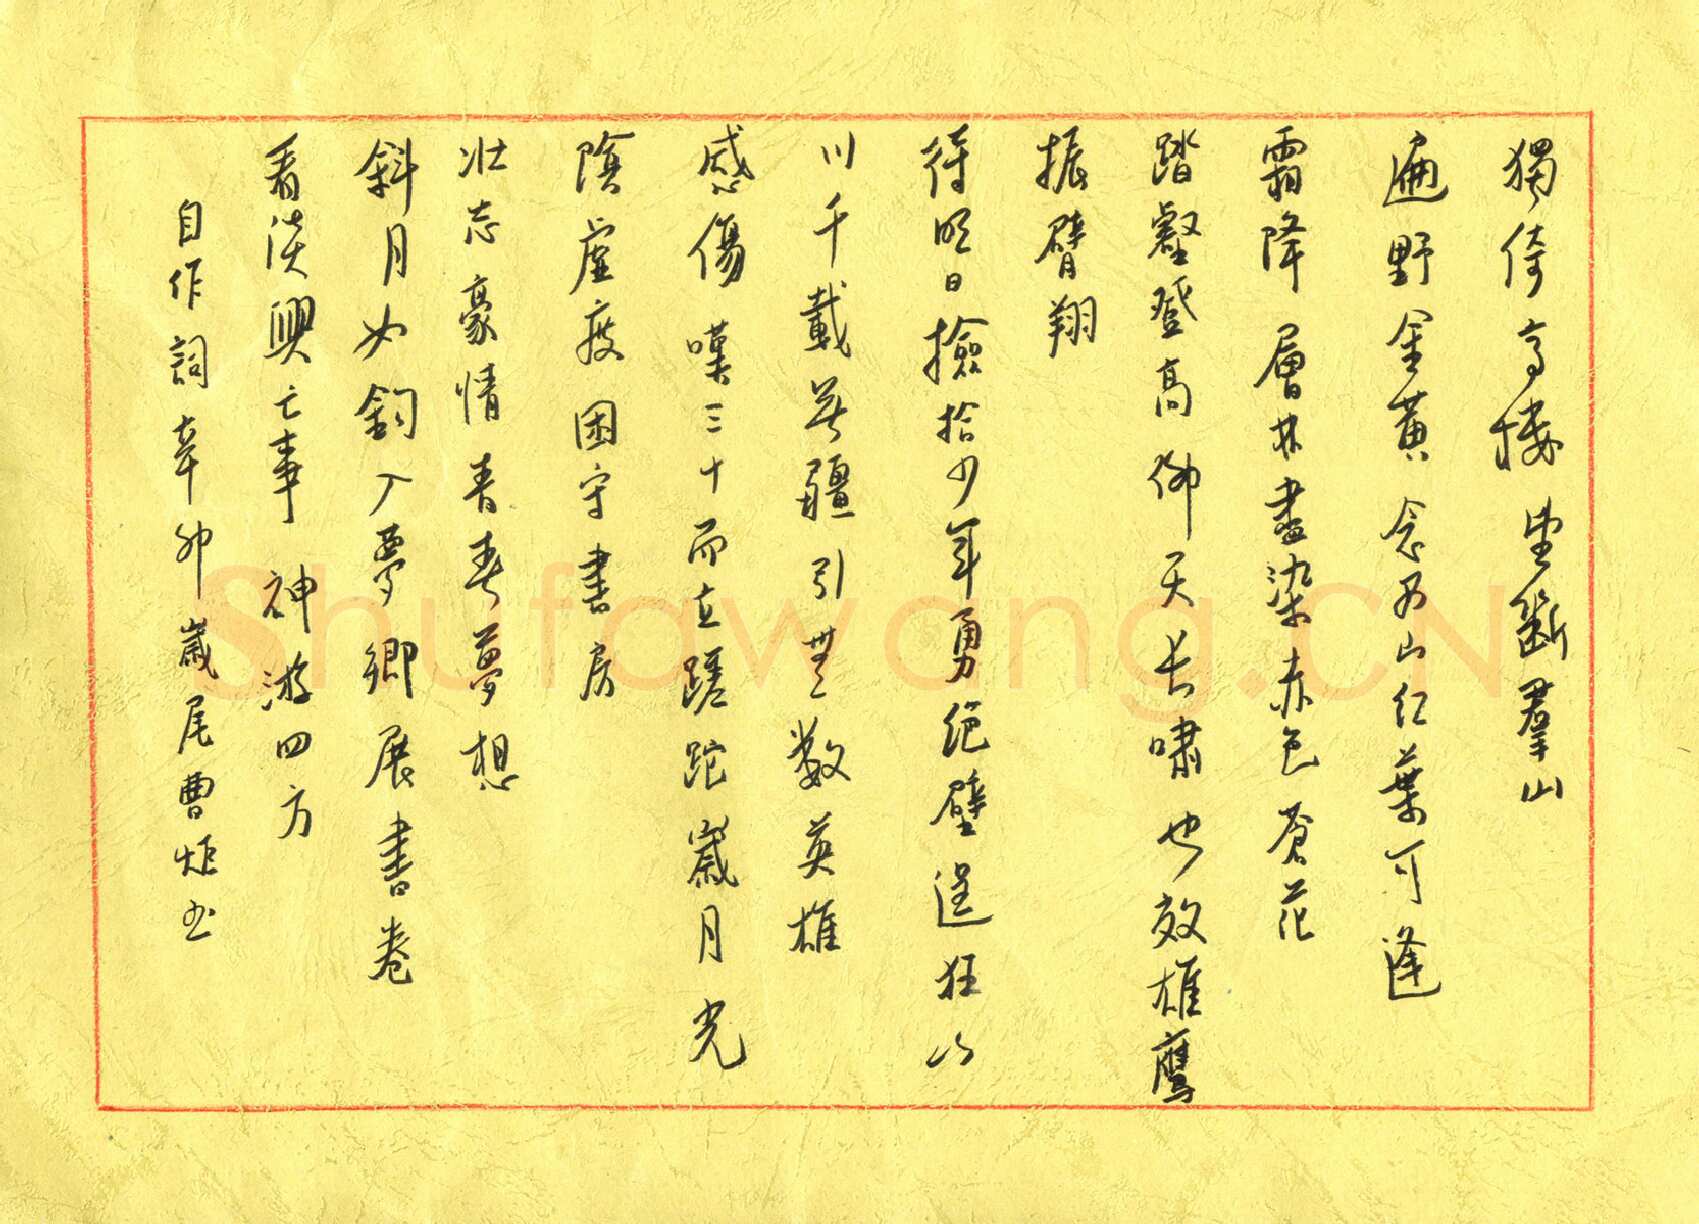 獨倚高樓望斷羣山
遍野金黃念及山紅葉可逢
霜降層林盡染赤色蒼茫
踏壑登高仰天長嘯也效雄鷹
振臂翔
待明日撿拾少年勇絕壁逞狂山
川千載無疆引無數英雄
感傷嘆三十而立蹉跎歲月光
陰虛度困守書房
壯志豪情青春夢想
斜月如鉤入夢鄉展書卷
看淡興亡事神游四方
自作詞辛卯歲尾曹炬書
Shufawang.CN